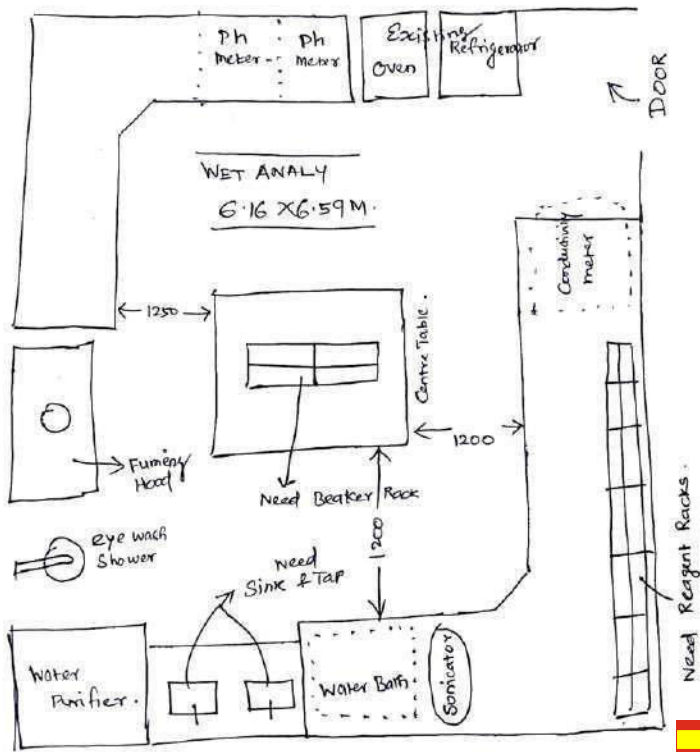 Ph
meter
Ph
meter
Oven
Existing
Refrigerator
DOOR
WET ANALY
6.16 X 6.59 M.
Conductivity
meter
1250
Centre Table.
1200
Fuming
Hood
Need Beaker Rack
1200
eye wash
Shower
Need
Sink & Tap
Need Reagent Racks.
Water
Purifier.
Water Bath
Sonicator